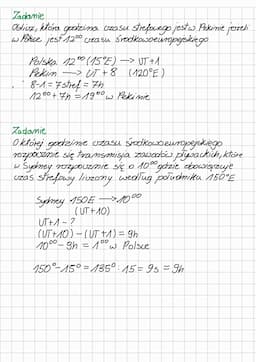 Zadanie
Oblicz, która godzina czasu strefowego jest w Pekinie jeżeli
w Polsce jest 12⁰⁰ czasu środkowoeuropejskiego
Polska 12⁰⁰ (15°E) → UT+1
Pekin → UT+8 (120°E)
8-1=7 stref = 7h
12⁰⁰ + 7h = 19⁰⁰ w Pekinie
Zadanie
O której godzinie czasu środkowoeuropejskiego
rozpocznie się transmisja zawodów pływackich, które
w Sydney rozpocznie się o 10⁰⁰ gdzie obowiązuje
czas strefowy liczony według południka 150°E
Sydney 150E → 10⁰⁰
(UT+10)
UT+1 - ?
(UT+10) - (UT+1) = 9h
10⁰⁰ - 9h = 1⁰⁰ w Polsce
150° - 15° = 135° : 15 = 9s = 9h